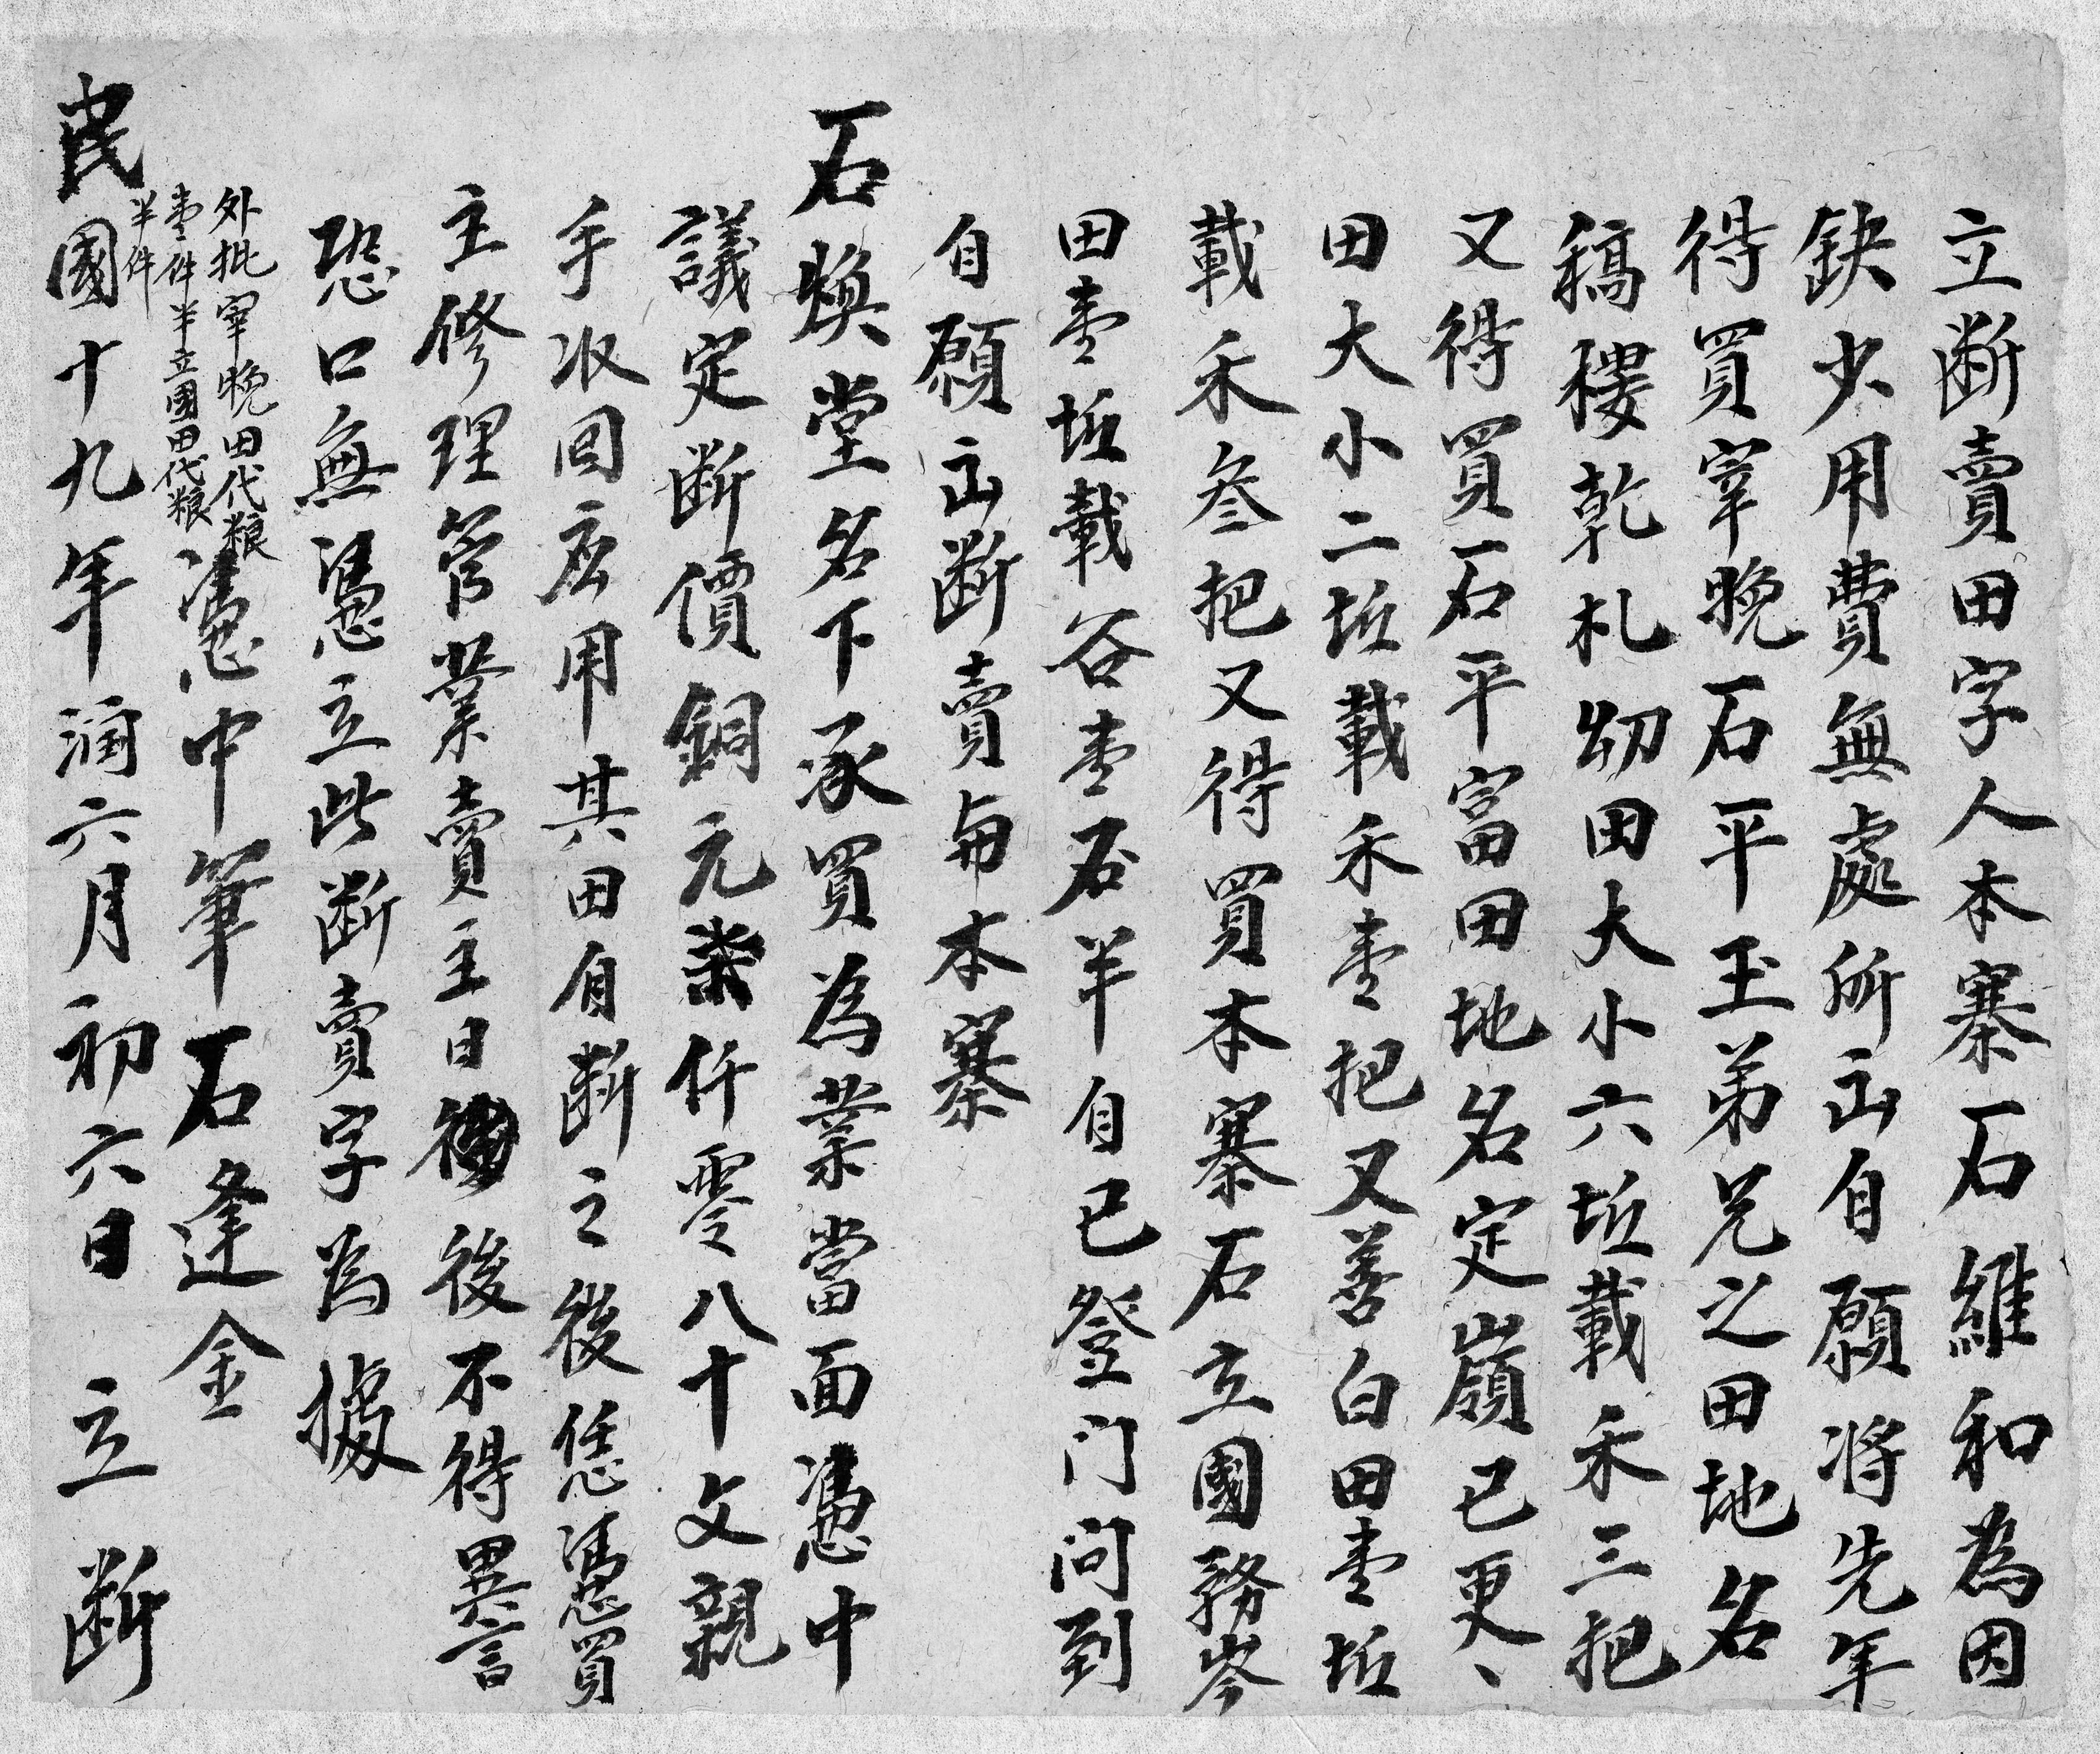 立断賣田字人本寨石維和為因
鈌少用費無處所出自願将先年
得買宰晚石平玉弟兄之田地名
稿稷乾札㓜田大小六坵載禾三把
又得買石平富田地名定嶺已更、
田大小二坵載禾壹把又善白田壹坵
載禾叁把又得買本寨石立國務岑
田壹坵載谷壹石半自已登门问到
自願出断賣與本寨
石煥堂名下承買為業當面憑中
議定断價銅元柒仟零八十文親
手收回應用其田自断之後恁憑買
主修理管業賣主日後不得異言
恐口無憑立此断賣字為據
外批宰晚田代粮
壹件半立國田代粮
半件
憑中筆石逢金
民國十九年潤六月初六日 立断